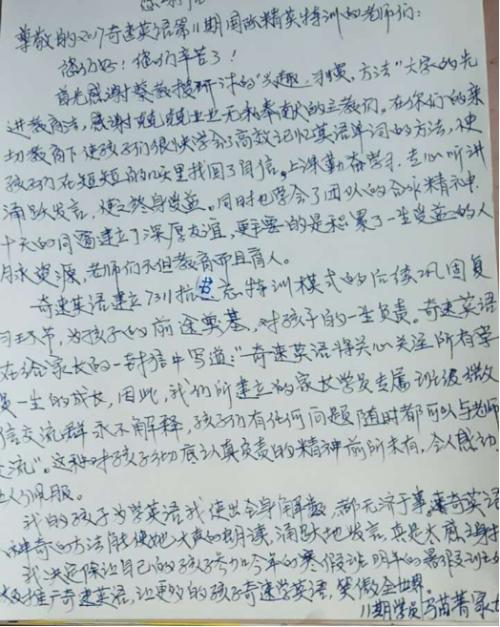 尊敬的2017奇速英语第11期国际精英特训的老师们：
您们好！您们辛苦了！
首先感谢蔡教授研讨的“兴趣、习惯、方法”六字的先
进教育法，感谢兢兢业业无私奉献的立教们。在你们的亲
切教育下使孩子们很快学会了高效记忆英语单词的方法，使
孩子们在短短的时间里找回了自信。上课勤奋学习，专心听讲
涌跃发言，使之终身受益。同时也学会了团队的合作精神
十天的时间建立了深厚友谊，更主要的是积累了一生受益的人
脉资源，老师们不但教育而且育人。
奇速英语建立7311抗忘特训模式的后续巩固复
习环节，为孩子的前途奠基，对孩子的一生负责。奇速英语
在给家长的一封信中写道：“奇速英语将关心关注所有学
员一生的成长，因此，我们所建立的家长学员专属班级微
信交流群永不解释，孩子们有任何问题随时都可以与老师
交流”。这种对孩子彻底认真负责的精神前所未有，令人感动
让人佩服。
我的孩子为学英语我使出全身解数，都无济于事。奇英语
神奇的方法能使她大声的朗读，涌跃地发言，真是太感主身
我决定保让自己的孩子参加今年的寒假班明年的暑假班
推广奇速英语，让更多的孩子奇速学英语，笑傲全世界。
11期学员 苗菁家长